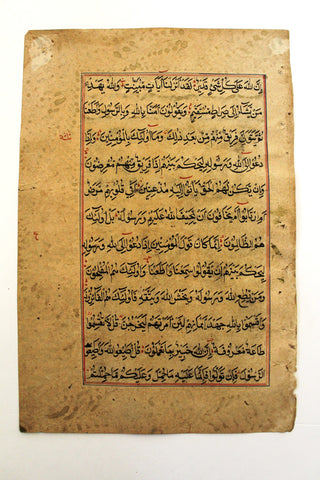 ان الله علی کل شیء قدیر لقد انزلنا ایات مبینت والله یهدی
من یشاء الی صراط مستقیم ویقولون امنا بالله وبالرسول واطعنا
ثم یتولی فریق منهم من بعد ذلک وما اولئک بالمؤمنین واذا
دعوا الی الله ورسوله لیحکم بینهم اذا فریق منهم معرضون
وان یکن لهم الحق یاتوا الیه مذعنین افی قلوبهم مرض
ام ارتابوا ام یخافون ان یحیف الله علیهم ورسوله بل اولئک
هم الظالمون انما کان قول المؤمنین اذا دعوا الی الله ورسوله
لیحکم بینهم ان یقولوا سمعنا واطعنا واولئک هم المفلحون
ومن یطع الله ورسوله ویخش الله ویتقه فاولئک هم الفائزون
واقسموا بالله جهد ایمانهم لئن امرتهم لیخرجن قل لا تقسموا
طاعة معروفة ان الله خبیر بما تعملون قل اطیعوا الله واطیعوا
الرسول فان تولوا فانما علیه ما حمل وعلیکم ما حملتم